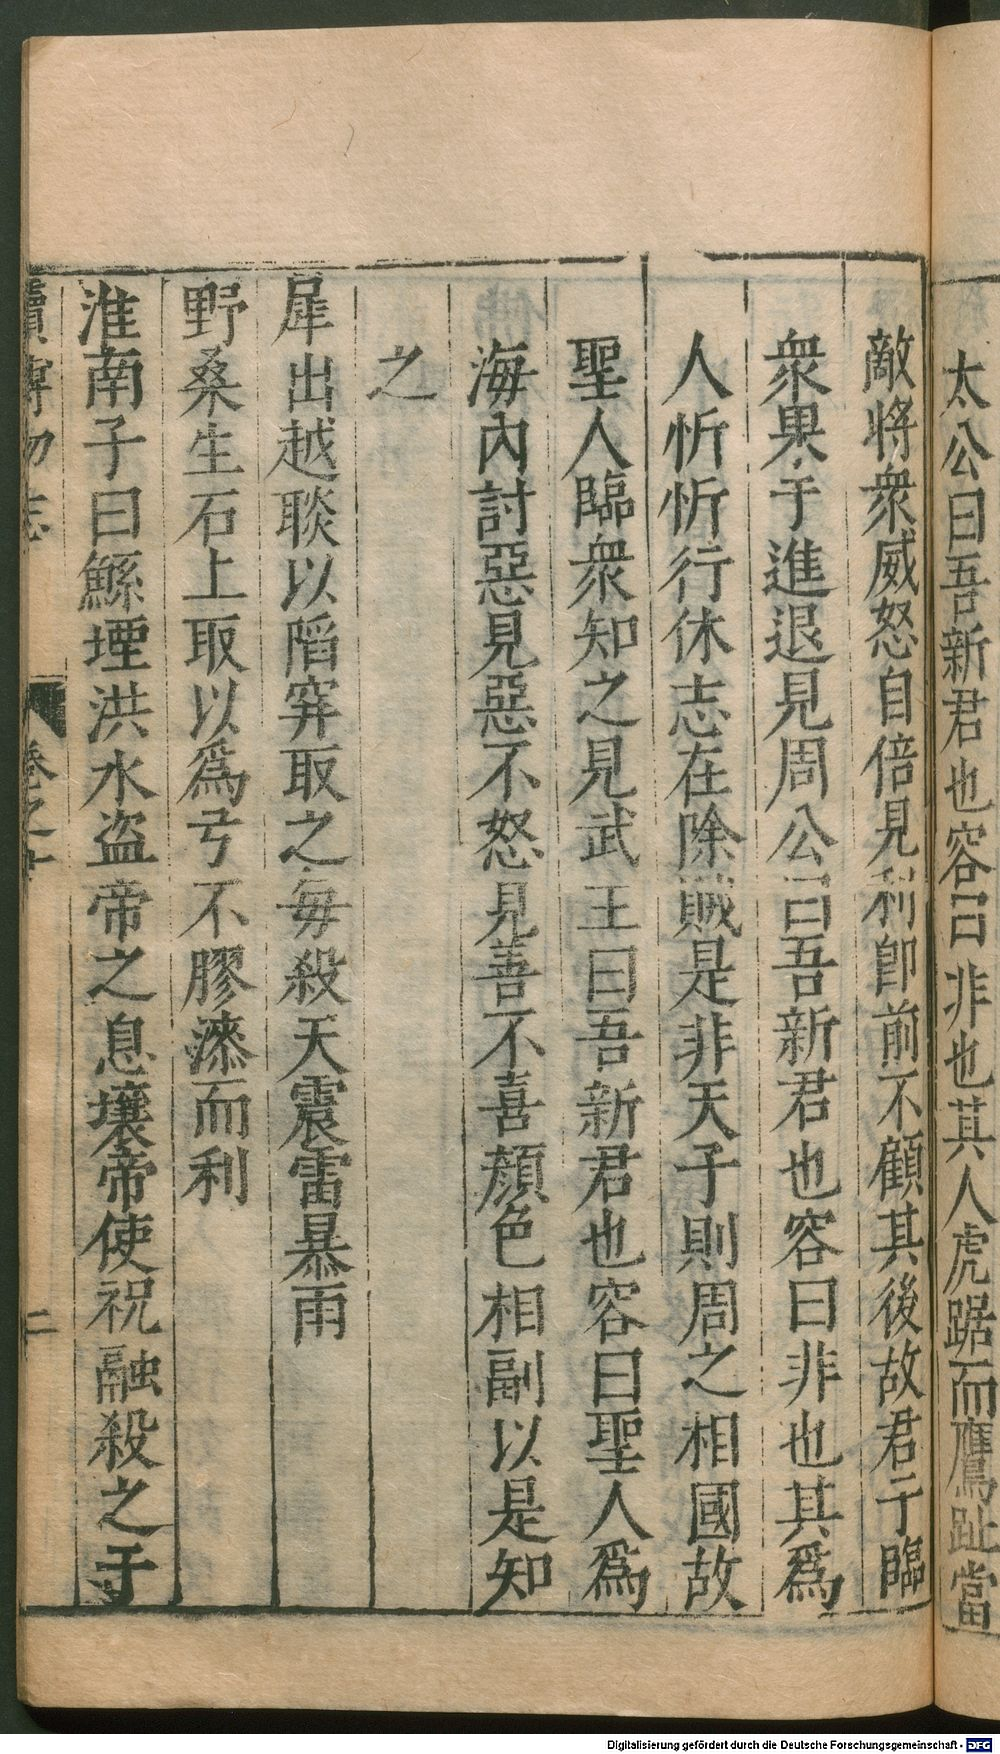 太公曰吾新君也容曰非也其人虎踞而鷹趾當
敵將衆威怒自倍見利卽前不顧其後故君子臨
衆果于進退見周公曰吾新君也容曰非也其爲
人忻忻行休志在除賊是非天子則周之相國故
聖人臨衆知之見武王曰吾新君也容曰聖人爲
海內討惡見惡不怒見善不喜顏色相副以是知
之
犀出越聚以陷穽取之每殺天震雷暴雨
野桑生石上取以爲弓不膠漆而利
淮南子曰鯀堙洪水盜帝之息壤帝使祝融殺之于
續博物志 卷之十 二
Digitalisierung gefördert durch die Deutsche Forschungsgemeinschaft - DFG